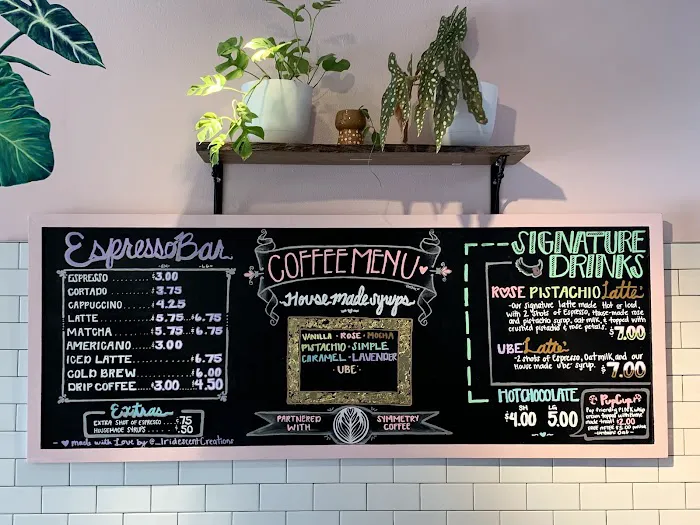 EspressoBar
ESPRESSO ........ $3.00
CORTADO ........ $3.75
CAPPUCCINO ........ $4.25
LATTE ........ $5.75 $6.75
MATCHA ........ $5.75 $6.75
AMERICANO ........ $3.00
ICED LATTE ........ $6.75
COLD BREW ........ $6.00
DRIP COFFEE ........ $3.00 $4.50
Extras
EXTRA SHOT OF ESPRESSO .... $.75
HOUSEMADE SYRUPS ........ $.50
made with Love by @_IridescentCreations
COFFEE MENU
House made syrups
VANILLA · ROSE · MOCHA
PISTACHIO · SIMPLE
CARAMEL · LAVENDER
· UBE ·
PARTNERED WITH
SYMMETRY COFFEE
SIGNATURE
DRINKS
ROSE PISTACHIO Latte
-Our signature latte made Hot or Iced,
with 2 shots of Espresso, House-made rose
and pistachio syrup, oat milk, & topped with
crushed pistachio & rose petals.
$7.00
UBE Latte
-2 shots of Espresso, Oatmilk, and our
House made ube syrup.
$7.00
HOT CHOCOLATE
SM LG
$4.00 5.00
PupCup
Pup friendly PINK whip
cream topped with Home
made treat! $2.00